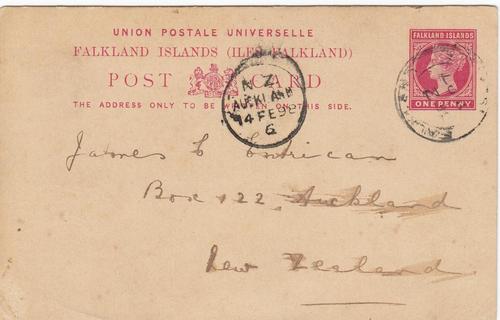 UNION POSTALE UNIVERSELLE
FALKLAND ISLANDS (ILES FALKLAND)
POST CARD
THE ADDRESS ONLY TO BE WRITTEN ON THIS SIDE.
FALKLAND ISLANDS
ONE PENNY
N Z
AUCKLAND
14 FE 92
6
James C Entrican
Box 122, Auckland
New Zealand